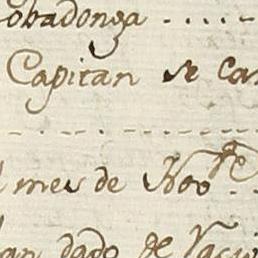 obadonga .....
Capitan se ca
mes de Nov.e
an dado de